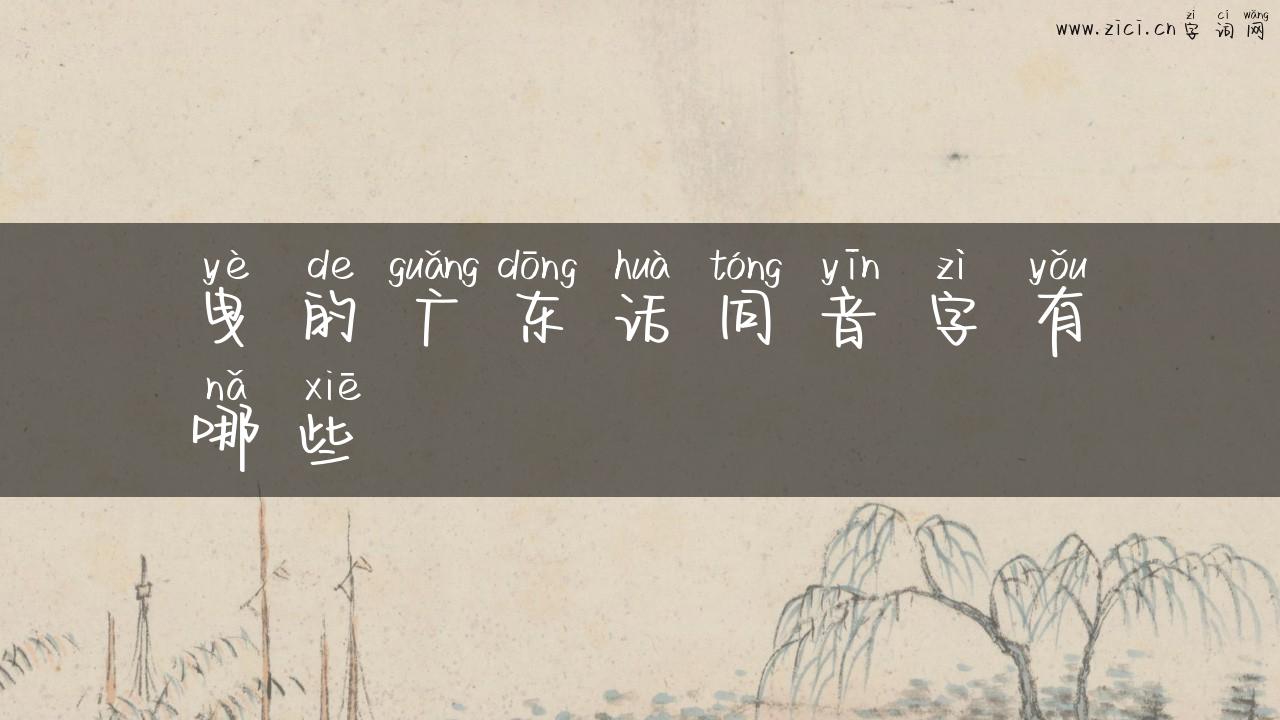 zì cí wǎng
www.zici.cn 字词网
yè de guǎng dōng huà tóng yīn zì yǒu
曳的广东话同音字有
nǎ xiē
哪些